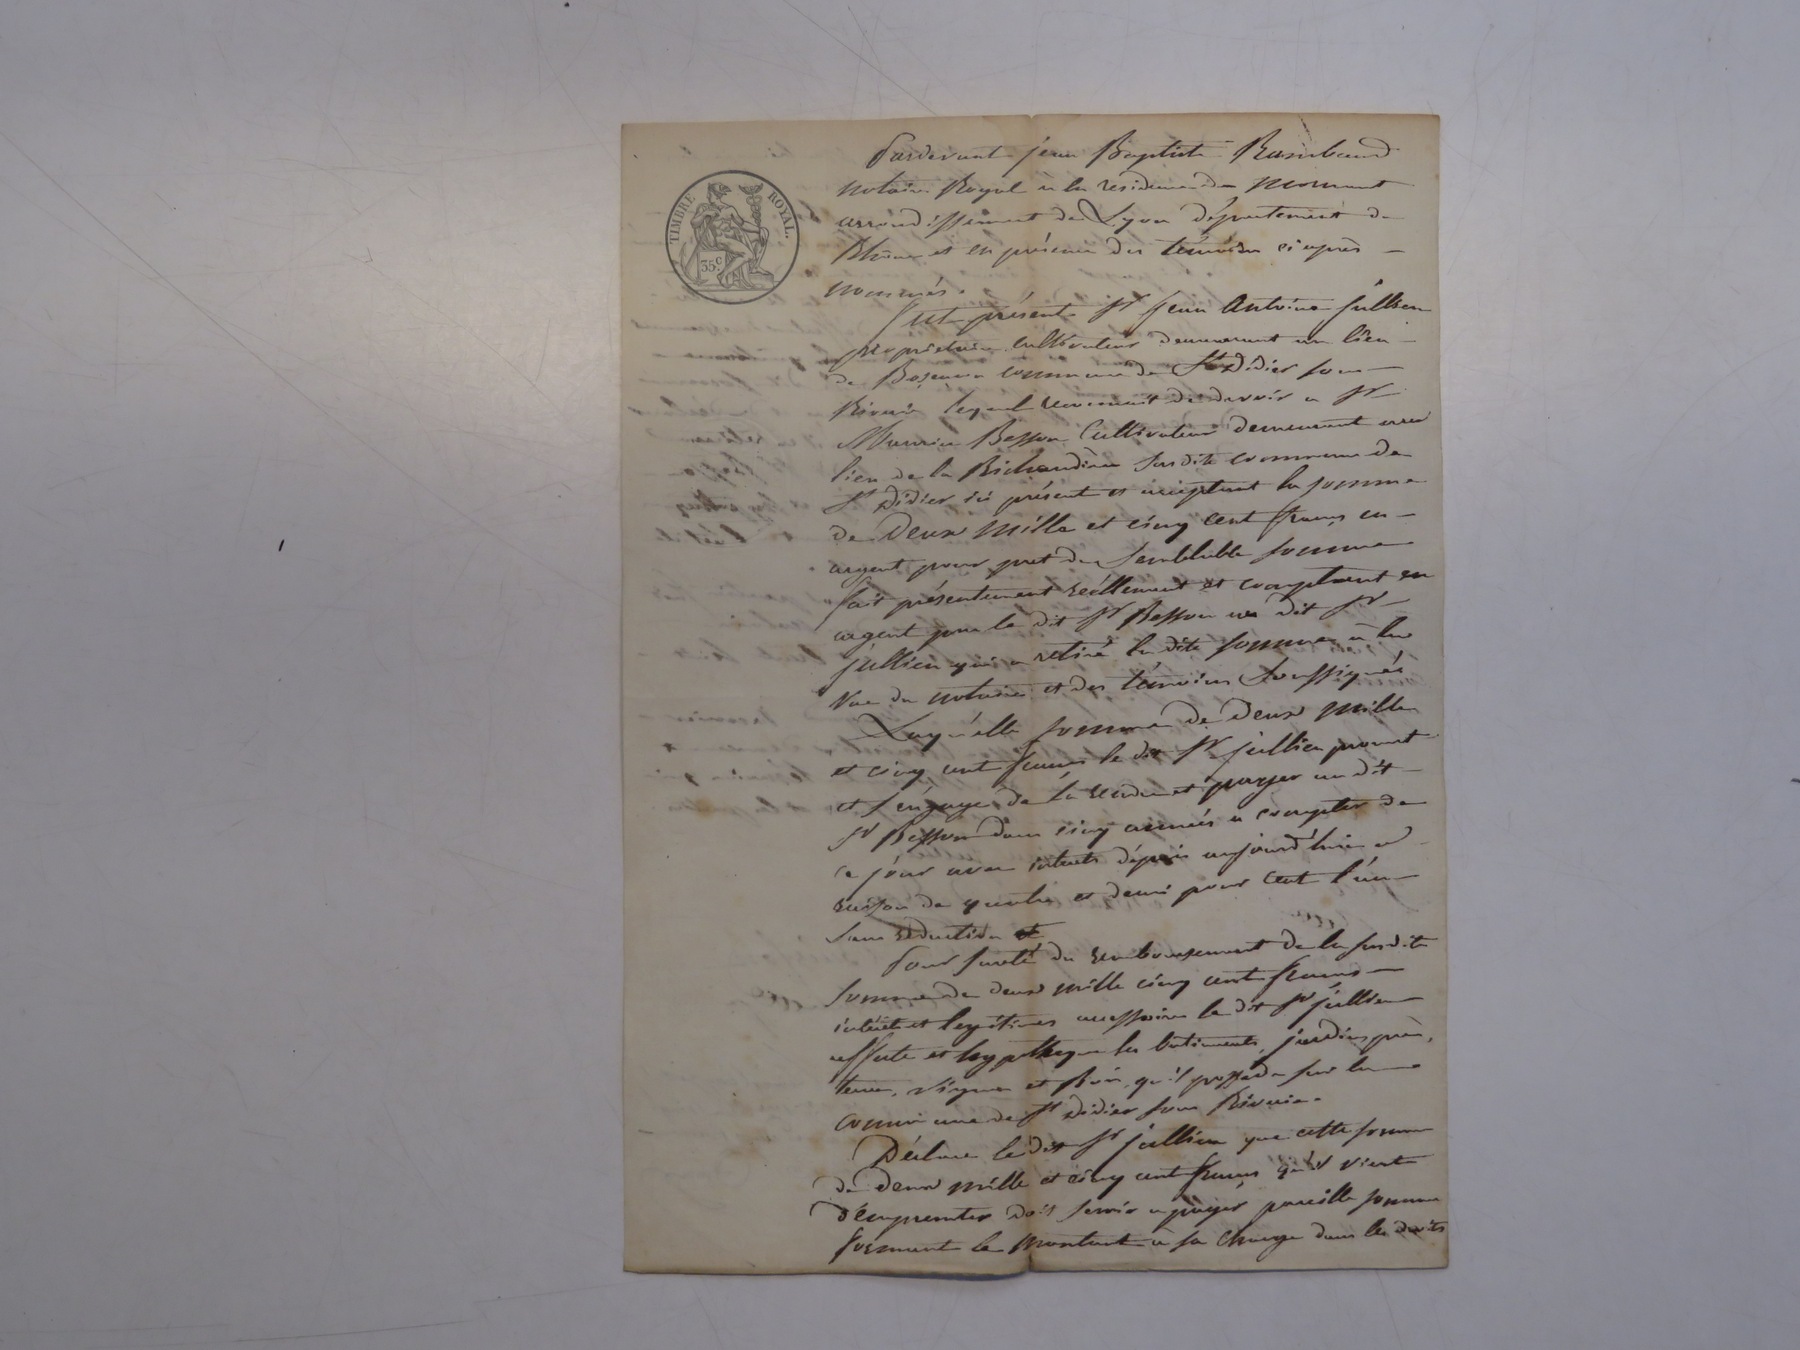 TIMBRE ROYAL.
35 c.
Pardevant jean Baptiste Rambaud
notaire Royal a la residence de mornant
arrondissement de Lyon département du
Rhône et en présence des témoins ci après
nommés.
fut présent Sr jean Antoine jullien
propriétaire cultivateur demeurant au lieu
de commune de St Didier sous
Riverie lequel reconnait de devoir a Sr
Besson Cultivateur demeurant au
lieu de la Richaudière susdite commune de
St Didier ici présent et acceptant la somme
de Deux mille et cinq cent francs en
argent pour pret de semblable somme
fait présentement réellement et comptant en
argent par le dit Sr Besson au dit Sr
jullien qui a retiré la dite somme à la
vue du notaire et des témoins soussignés
Laquelle somme de Deux mille
et cinq cent francs le dit Sr jullien promet
et s'engage de la rendre et payer au dit
Sr Besson dans cinq années a compter de
ce jour avec intérêts dépuis aujourd'hui a
raison de quatre et demi pour cent l'an
sans réduction
Pour sureté du remboursement de la susdite
somme de deux mille cinq cent francs
intérêts et legitimes accessoires le dit Sr jullien
affecte et hypothèque les batiments, jardin, près,
terres, vignes et Bois, qu'il possède sur la
commune de St Didier sous Riverie.
Déclare le dit Sr jullien que cette somme
de deux mille et cinq cent francs qu'il vient
d'emprunter doit servir a payer pareille somme
formant le montant à sa charge dans les droits